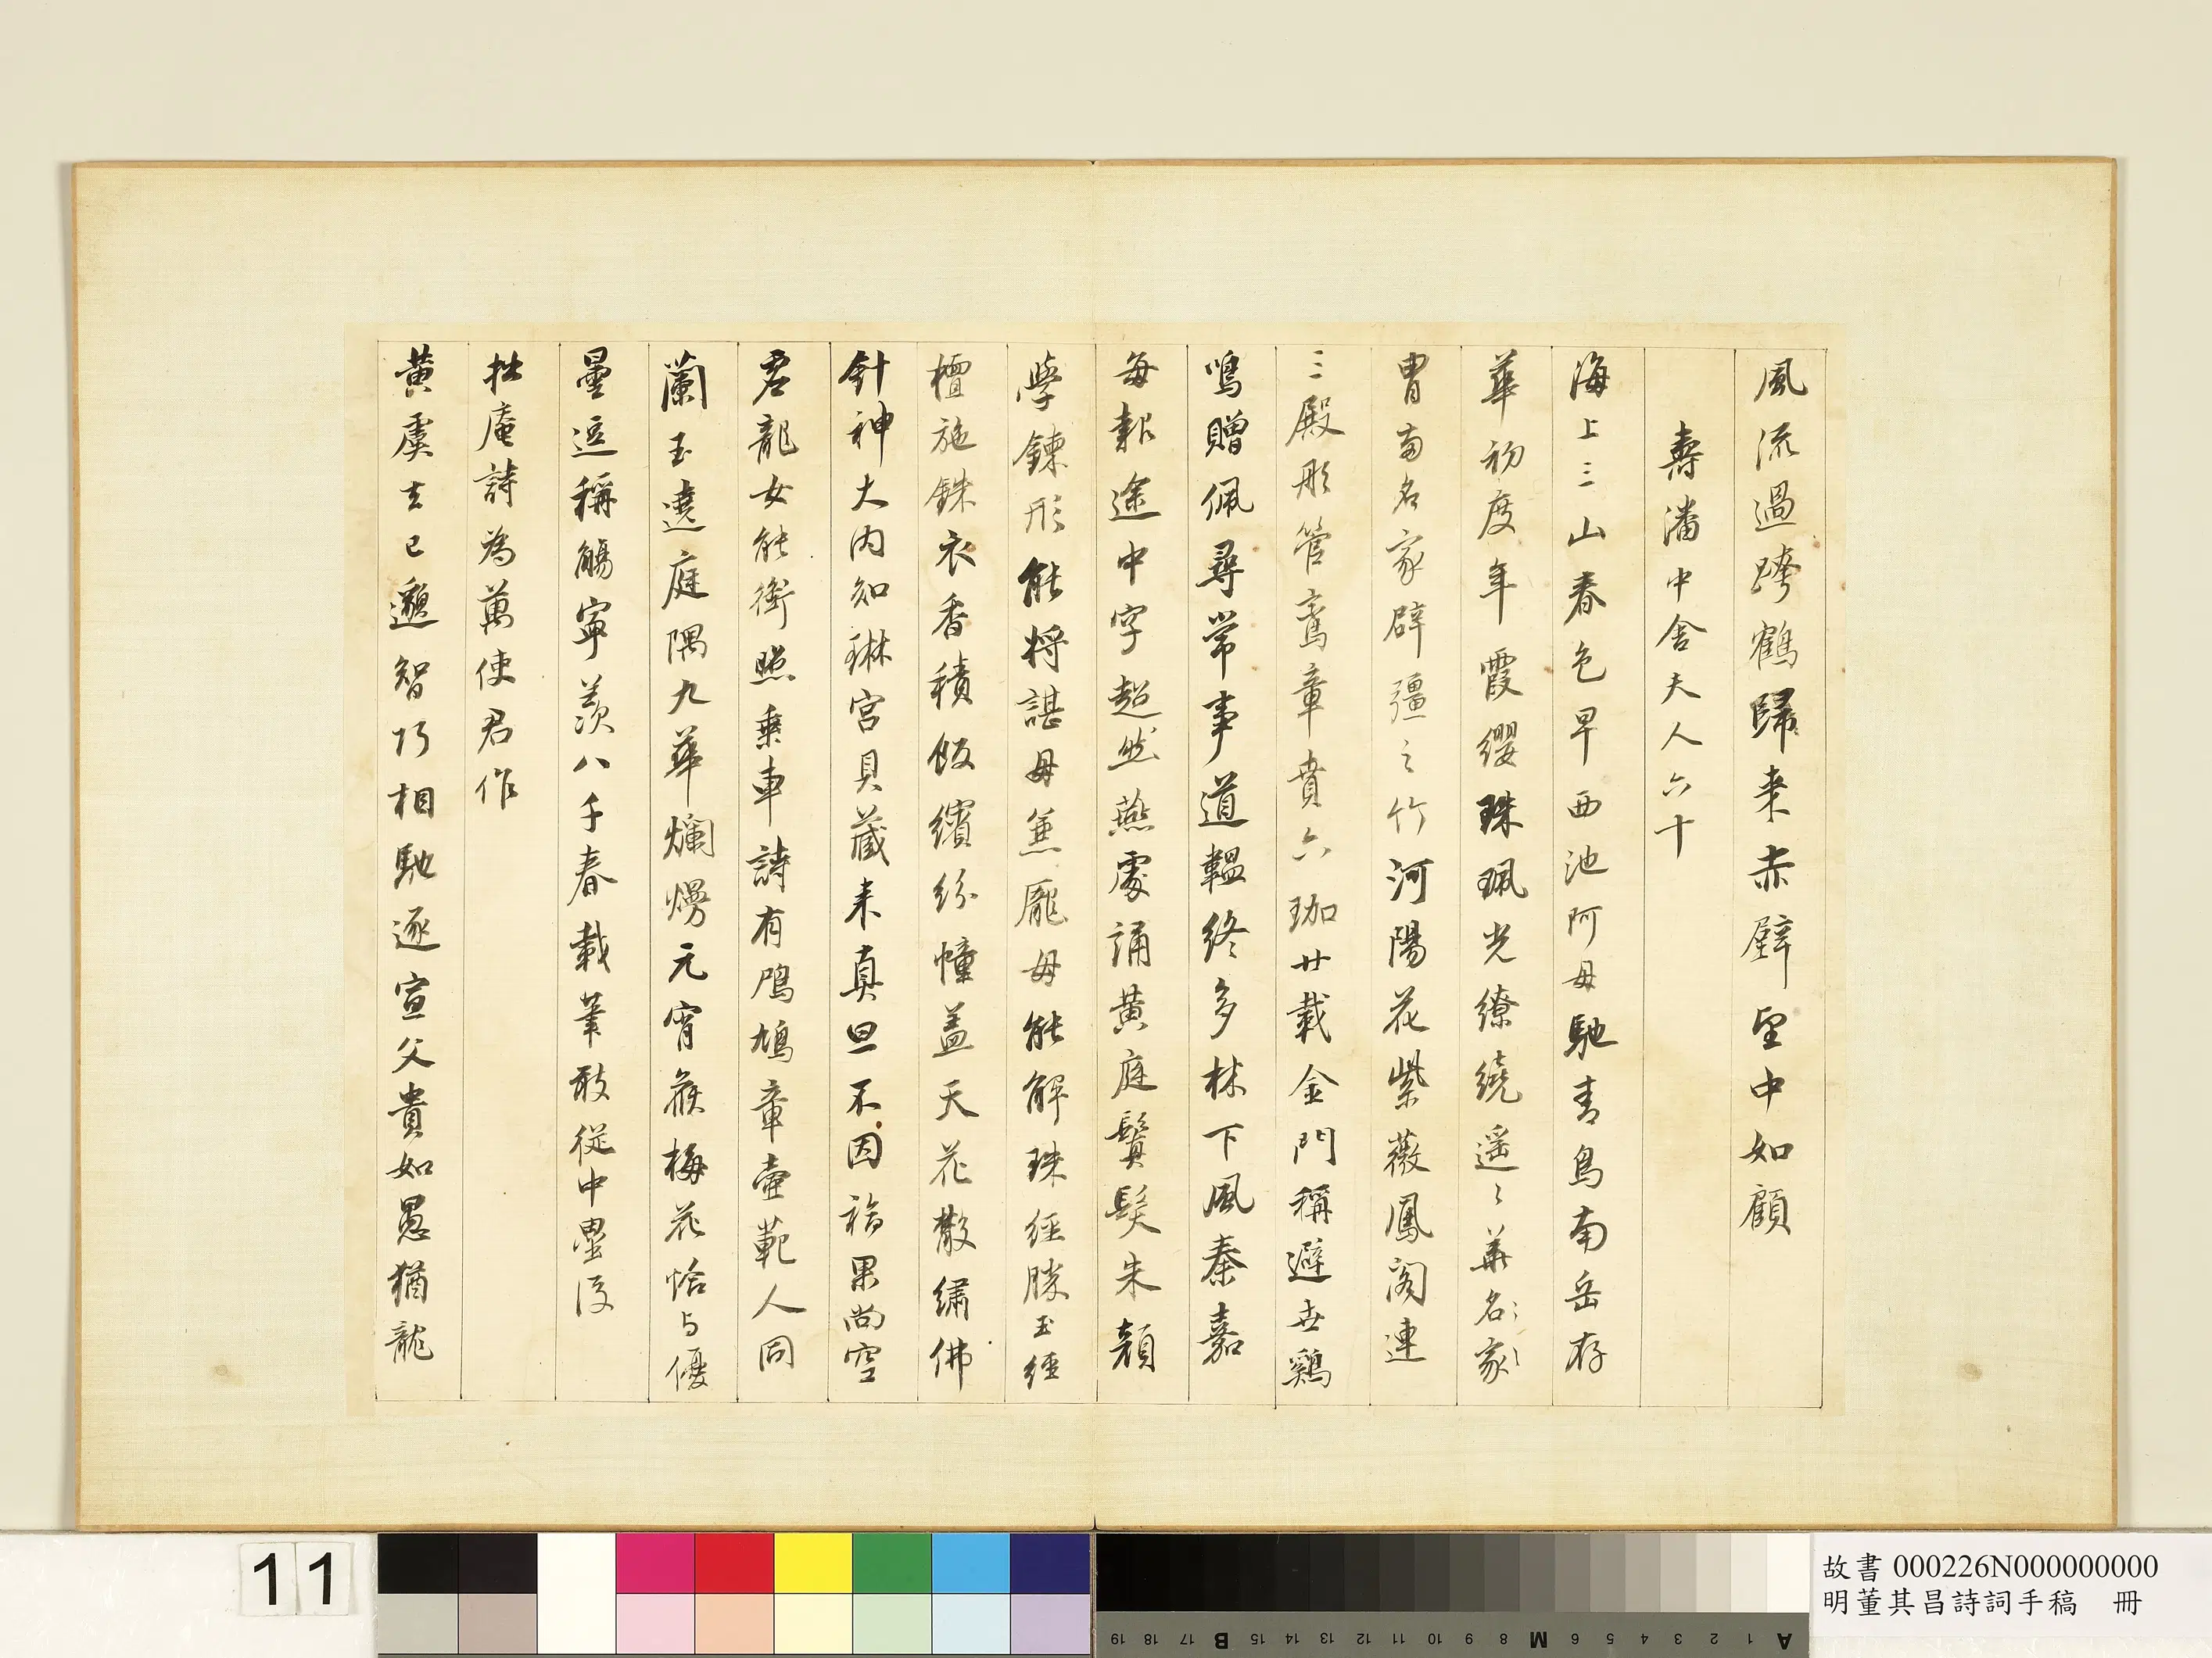 風流過跨鶴歸来赤壁圖中如顧
壽潘中舍夫人六十
海上三山春色早西池阿母馳青鳥南岳存
華初度年霞纓珠珮光繚繞遥〻華名〻家〻
胄南名家辟彊之竹河陽花紫薇鳳閣連
三殿彤管鸞章賁六珈廿載金門稱避世鷄
鳴贈佩尋常事道韞終多林下風秦嘉
每報途中字超然燕處誦黄庭鬢髮朱顔
學鍊形能将諶母兼龐母能解珠經勝玉經
檀施銖衣香積飯繽紛幢盖天花散繡佛
針神大内知琳宮貝藏来真旦不因福果尚空
君龍女能銜照乗車詩有鳲鳩章壼範人同
蘭玉遶庭隅九華爛熳元宵蕤梅花恰与優
曇逗稱觴寧羡八千春載筆敢從中壘後
拙庵詩為萬使君作
黄虞去已邈智巧相馳逐宣父貴如愚猶龍
11
故書 000226N000000000
明董其昌詩詞手稿 冊
A 1 2 3 4 5 6 M 8 9 10 11 12 13 14 15 B 17 18 19